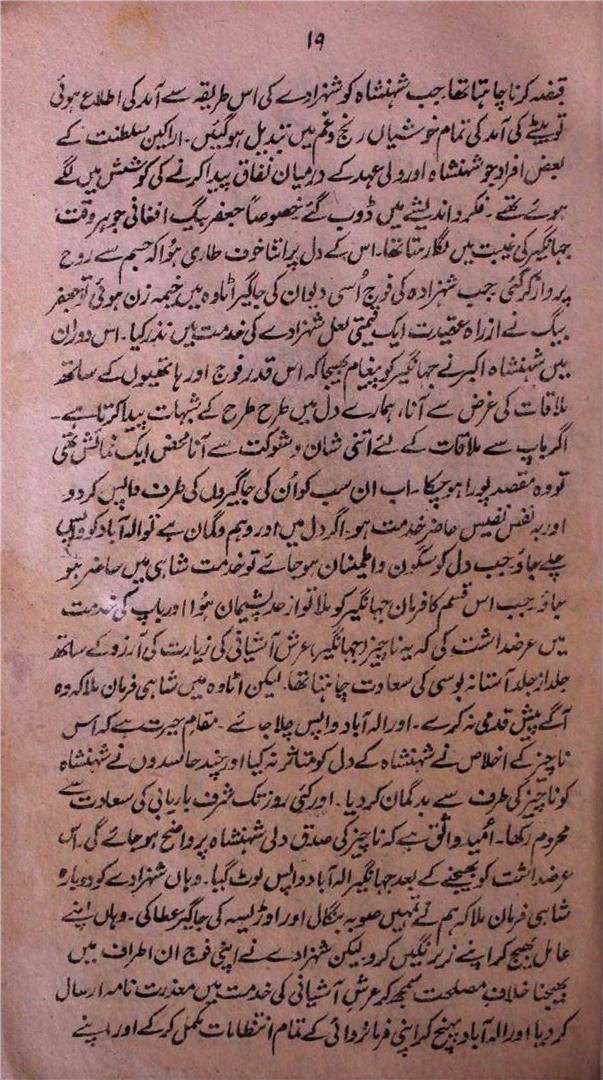 ۱۹
قبضہ کرنا چاہتا تھا۔ جب شہنشاہ کو شہزادے کی اس طریقہ سے آمد کی اطلاع ہوئی
تو بیٹے کی آمد کی تمام خوشیاں رنج و غم میں تبدیل ہو گئیں۔ اراکین سلطنت کے
بعض افراد جو شہنشاہ اور ولی عہد کے درمیان نفاق پیدا کرنے کی کوشش میں لگے
ہوئے تھے۔ فکر و اندیشے میں ڈوب گئے خصوصاً جعفر بیگ افغانی جو ہر وقت
جہانگیر کی غیبت میں لگا رہتا تھا۔ اس کے دل پر اتنا خوف طاری ہوا کہ جسم سے روح
پرواز کر گئی۔ جب شہزادہ کی فوج اُسی دیوان کی جاگیر اٹاوہ میں خیمہ زن ہوئی تو جعفر
بیگ نے از راہ عقیدت ایک قیمتی لعل شہزادے کی خدمت میں نذر کیا۔ اس دوران
میں شہنشاہ اکبر نے جہانگیر کو پیغام بھیجا کہ اس قدر فوج اور ہاتھیوں کے ساتھ
ملاقات کی غرض سے آنا، ہمارے دل میں طرح طرح کے شبہات پیدا کرتا ہے۔
اگر باپ سے ملاقات کے لئے اتنی شان و شوکت سے آنا محض ایک نمائش تھی
تو وہ مقصد پورا ہو چکا۔ اب ان سب کو اُن کی جاگیروں کی طرف واپس کر دو۔
اور بہ نفس نفیس حاضر خدمت ہو۔ اگر دل میں اور وہم و گمان ہے تو الہ آباد کو واپس
چلے جاؤ۔ جب دل کو سکون و اطمینان ہو جائے تو خدمت شاہی میں حاضر ہو
جاؤ۔ جب اس قسم کا فرمان جہانگیر کو ملا تو از حد پشیمان ہوا اور باپ کی خدمت
میں عرضداشت کی کہ یہ ناچیز (جہانگیر) عرش آشیانی کی زیارت کی آرزو کے ساتھ
جلد از جلد آستانہ بوسی کی سعادت چاہتا تھا۔ لیکن اٹاوہ میں شاہی فرمان ملا کہ وہ
آگے پیش قدمی نہ کرے۔ اور الہ آباد واپس چلا جائے۔ مقام حیرت ہے کہ اس
ناچیز کے اخلاص نے شہنشاہ کے دل کو متاثر نہ کیا اور چند حاسدوں نے شہنشاہ
کو ناچیز کی طرف سے بدگمان کر دیا۔ اور کئی روز تک شرف باریابی کی سعادت سے
محروم رکھا۔ اُمید واثق ہے کہ ناچیز کی صدق دلی شہنشاہ پر واضح ہو جائے گی۔ اس
عرضداشت کو بھیجنے کے بعد جہانگیر الہ آباد واپس لوٹ گیا۔ وہاں شہزادے کو دوبارہ
شاہی فرمان ملا کہ ہم نے تمہیں صوبہ بنگال اور اوڑیسہ کی جاگیر عطا کی۔ وہاں اپنے
عامل بھیج کر اپنے زیر نگیں کرو۔ لیکن شہزادے نے اپنی فوج ان اطراف میں
بھیجنا خلاف مصلحت سمجھ کر عرش آشیانی کی خدمت میں معذرت نامہ ارسال
کر دیا اور الہ آباد پہنچ کر اپنی فرمانروائی کے تمام انتظامات مکمل کر کے اور اپنے